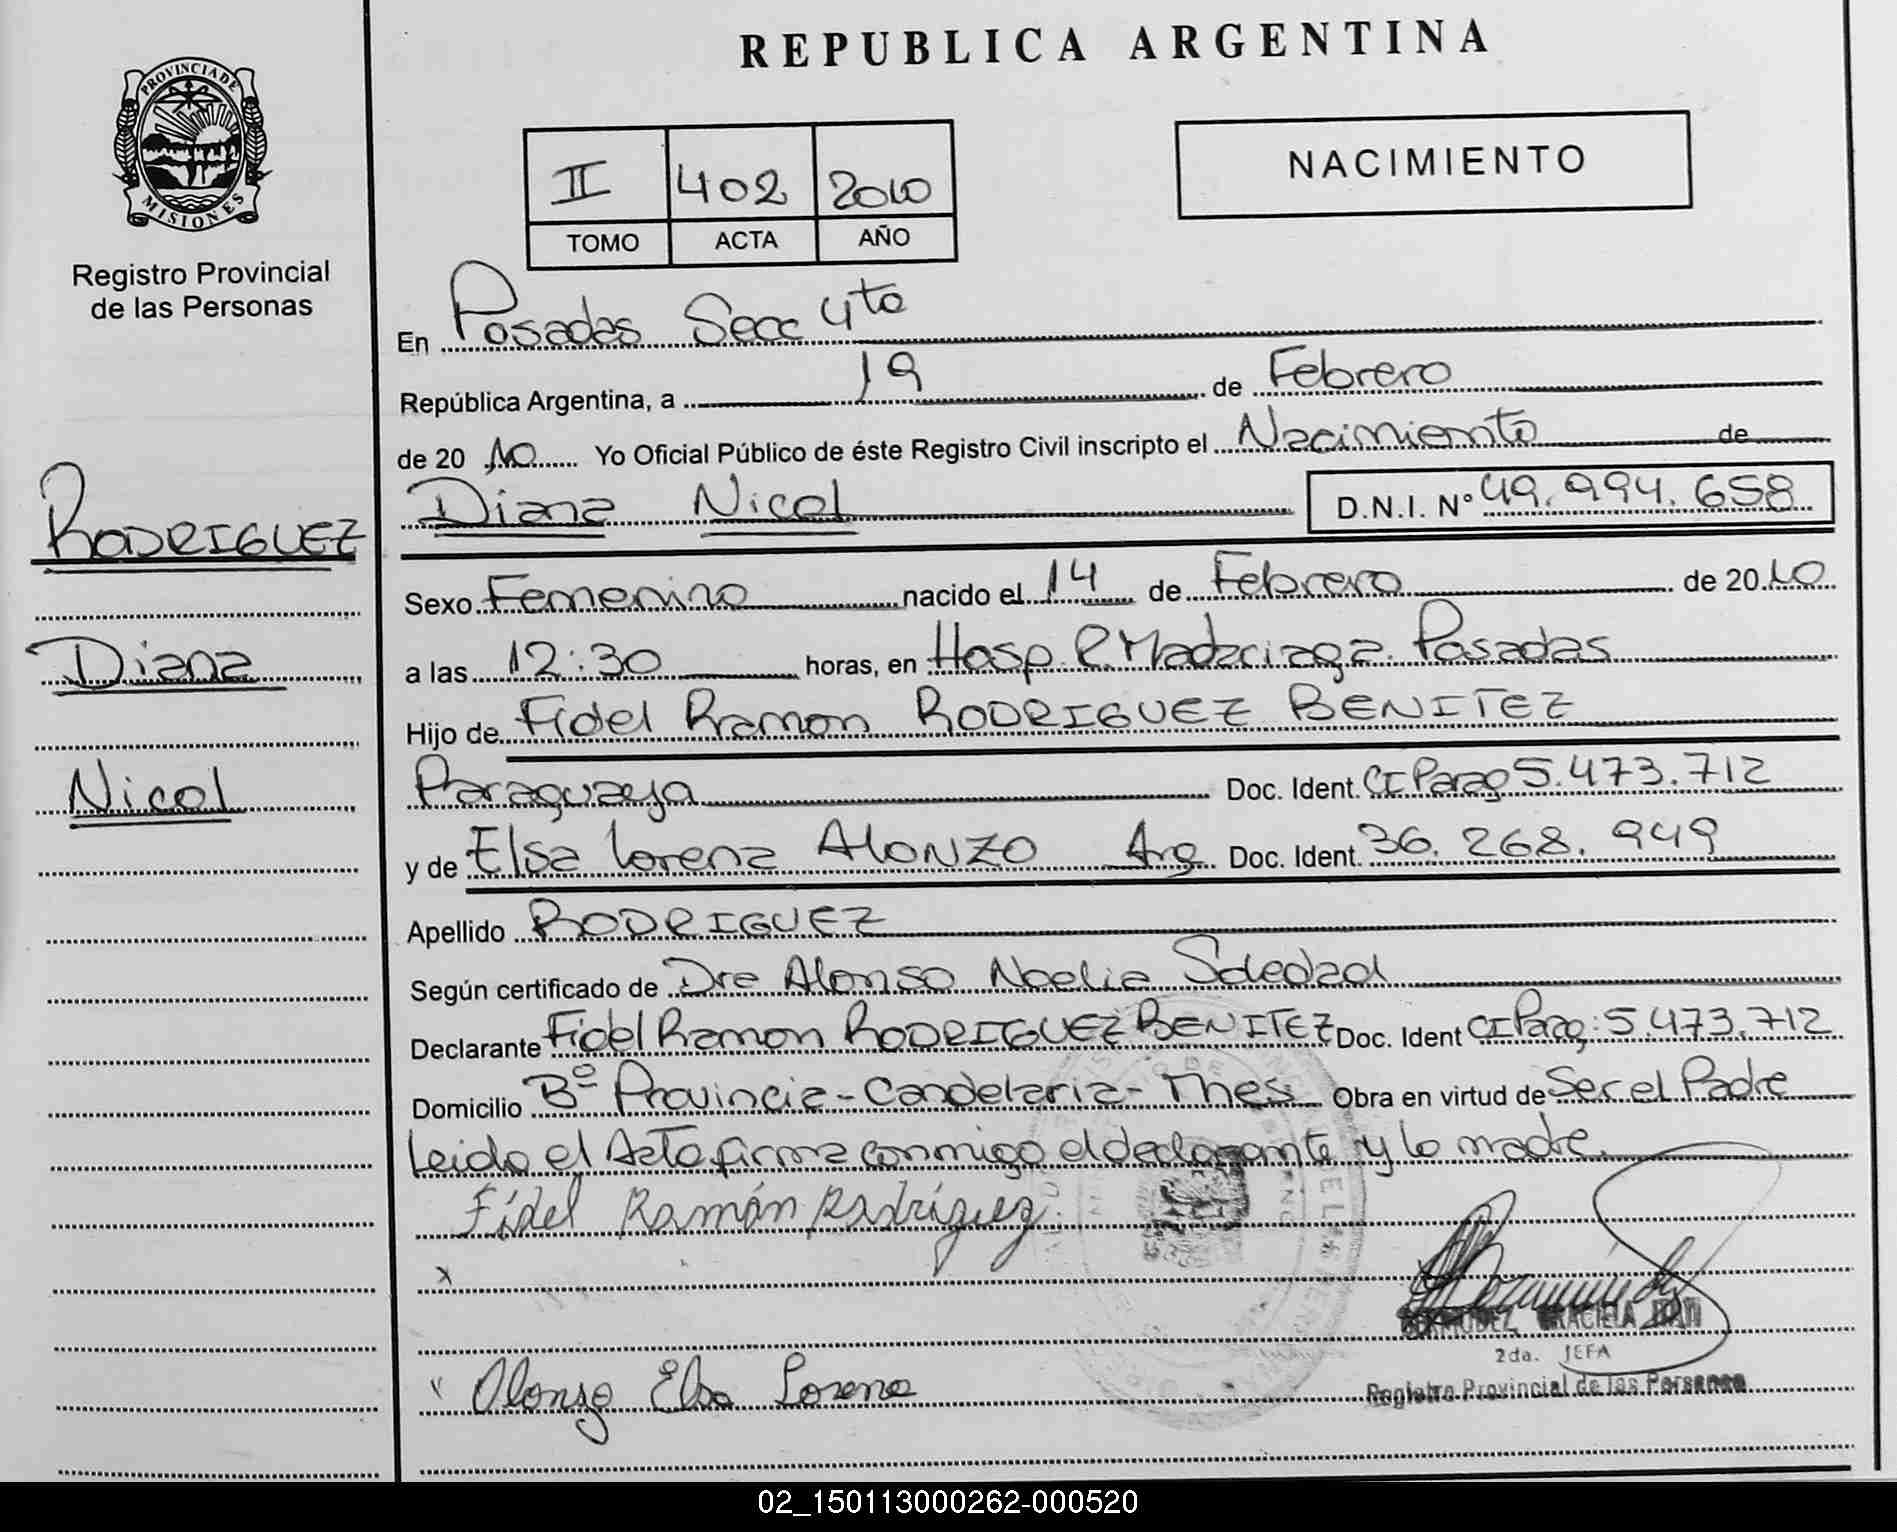 REPUBLICA ARGENTINA
PROVINCIA DE
MISIONES
Registro Provincial
de las Personas
NACIMIENTO
II 402 2010
TOMO ACTA AÑO
En Posadas Secc 4ta
República Argentina, a 19 de Febrero
de 20 10 Yo Oficial Público de éste Registro Civil inscripto el Nacimiento de
Diana Nicol D.N.I. Nº 49.994.658
RODRIGUEZ
Diana
Nicol
Sexo Femenino nacido el 14 de Febrero de 20 10
a las 12:30 horas, en Hosp. R. Madariaga. Posadas
Hijo de Fidel Ramon RODRIGUEZ BENITEZ
Paraguaya Doc. Ident. CI Parag 5.473.712
y de Elsa Lorena ALONZO Arg Doc. Ident. 36.268.949
Apellido RODRIGUEZ
Según certificado de Dra Alonso Noelia Soledad
Declarante Fidel Ramon RODRIGUEZ BENITEZ Doc. Ident CI Parag: 5.473.712
Domicilio Bº Provincia - Candelaria - Mnes Obra en virtud de Ser el Padre
Leido el Acta firma conmigo el declarante y la madre.
Fídel Ramón Rodríguez
x
BERMUDEZ GRACIELA
2da. JEFA
Registro Provincial de las Personas
Alonzo Elsa Lorena
02_150113000262-000520